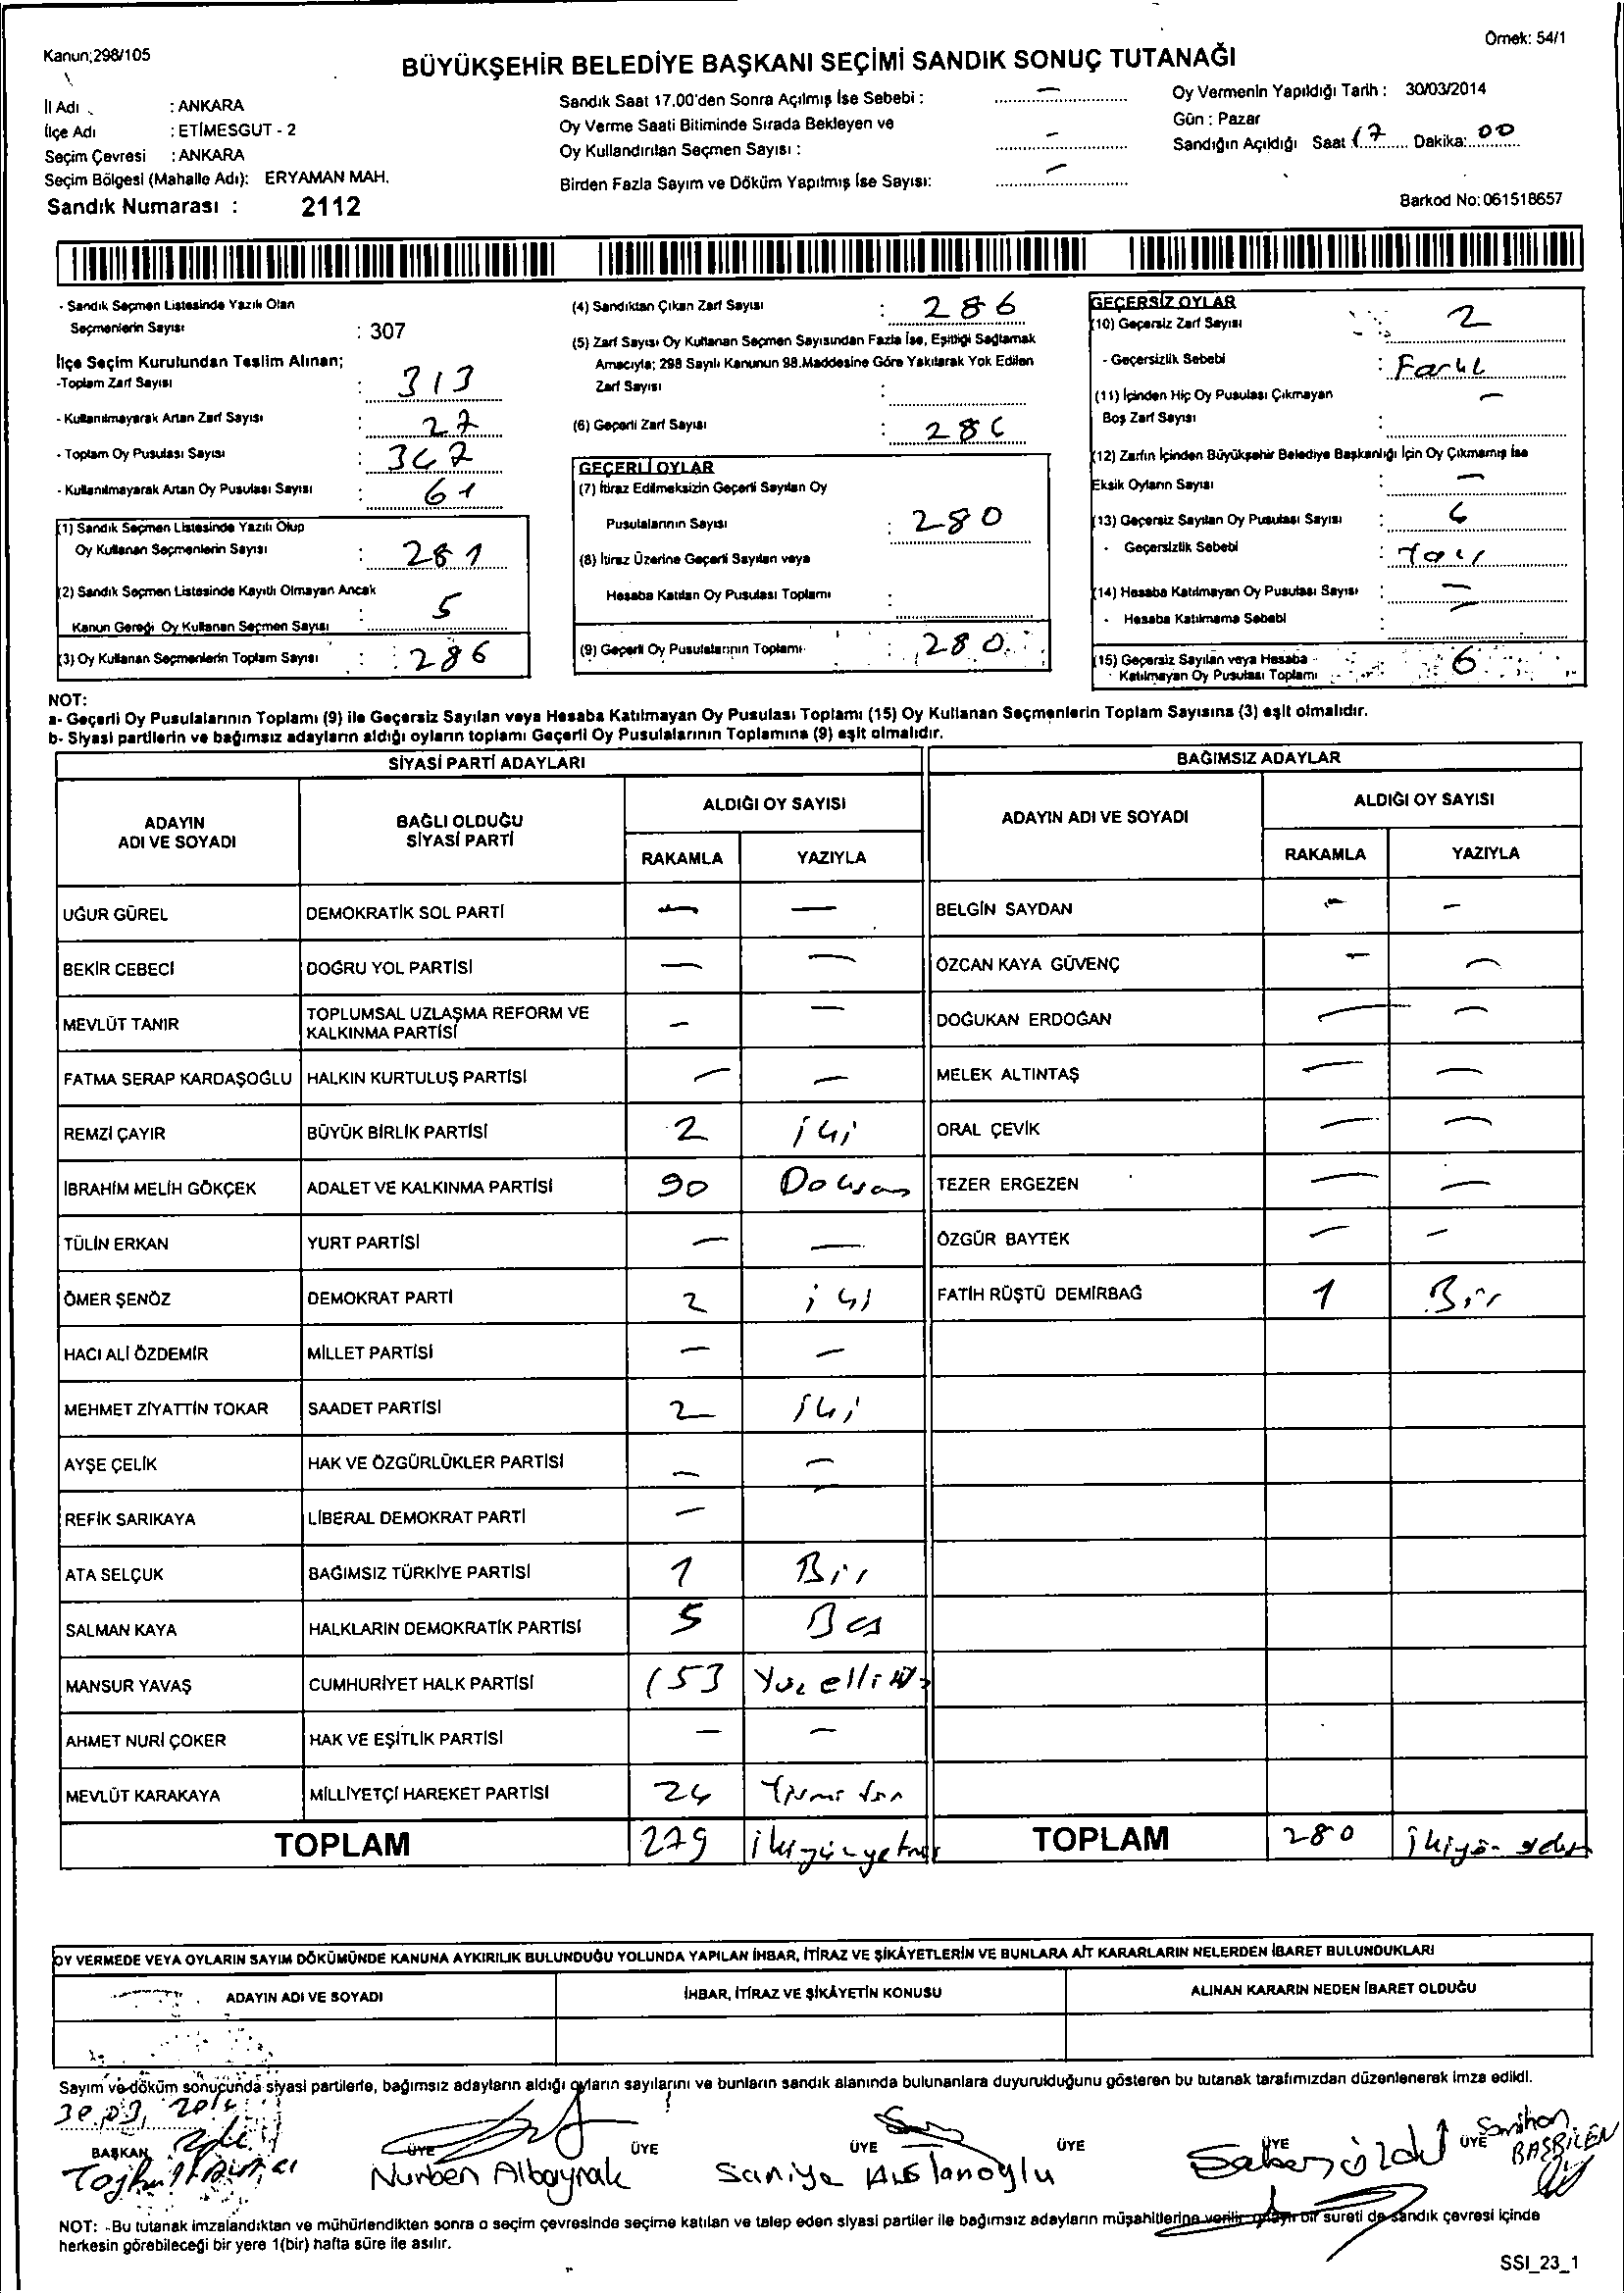 Kanun;298/105
Örnek: 54/1
BÜYÜKŞEHİR BELEDİYE BAŞKANI SEÇİMİ SANDIK SONUÇ TUTANAĞI
İl Adı : ANKARA
İlçe Adı : ETİMESGUT - 2
Seçim Çevresi : ANKARA
Seçim Bölgesi (Mahalle Adı): ERYAMAN MAH.
Sandık Numarası : 2112
Sandık Saat 17.00'den Sonra Açılmış İse Sebebi : –
Oy Verme Saati Bitiminde Sırada Bekleyen ve
Oy Kullandırılan Seçmen Sayısı : –
Birden Fazla Sayım ve Döküm Yapılmış İse Sayısı: –
Oy Vermenin Yapıldığı Tarih : 30/03/2014
Gün : Pazar
Sandığın Açıldığı Saat 17 Dakika: 00
Barkod No: 061518657
- Sandık Seçmen Listesinde Yazılı Olan
Seçmenlerin Sayısı : 307
İlçe Seçim Kurulundan Teslim Alınan;
-Toplam Zarf Sayısı : 313
- Kullanılmayarak Artan Zarf Sayısı : 27
- Toplam Oy Pusulası Sayısı : 347
- Kullanılmayarak Artan Oy Pusulası Sayısı : 61
(1) Sandık Seçmen Listesinde Yazılı Olup
Oy Kullanan Seçmenlerin Sayısı : 281
(2) Sandık Seçmen Listesinde Kayıtlı Olmayan Ancak
Kanun Gereği Oy Kullanan Seçmen Sayısı : 5
(3) Oy Kullanan Seçmenlerin Toplam Sayısı : 286
(4) Sandıktan Çıkan Zarf Sayısı : 286
(5) Zarf Sayısı Oy Kullanan Seçmen Sayısından Fazla İse, Eşitliği Sağlamak
Amacıyla; 298 Sayılı Kanunun 98.Maddesine Göre Yakılarak Yok Edilen
Zarf Sayısı :
(6) Geçerli Zarf Sayısı : 286
GEÇERLİ OYLAR
(7) İtiraz Edilmeksizin Geçerli Sayılan Oy
Pusulalarının Sayısı : 280
(8) İtiraz Üzerine Geçerli Sayılan veya
Hesaba Katılan Oy Pusulası Toplamı :
(9) Geçerli Oy Pusulalarının Toplamı : 280
GEÇERSİZ OYLAR
(10) Geçersiz Zarf Sayısı : 2
- Geçersizlik Sebebi : Farklı
(11) İçinden Hiç Oy Pusulası Çıkmayan
Boş Zarf Sayısı : –
(12) Zarfın İçinden Büyükşehir Belediye Başkanlığı İçin Oy Çıkmamış İse
Eksik Oyların Sayısı : –
(13) Geçersiz Sayılan Oy Pusulası Sayısı : 6
- Geçersizlik Sebebi :
(14) Hesaba Katılmayan Oy Pusulası Sayısı : –
- Hesaba Katılmama Sebebi : –
(15) Geçersiz Sayılan veya Hesaba
Katılmayan Oy Pusulası Toplamı : 6
NOT:
a- Geçerli Oy Pusulalarının Toplamı (9) ile Geçersiz Sayılan veya Hesaba Katılmayan Oy Pusulası Toplamı (15) Oy Kullanan Seçmenlerin Toplam Sayısına (3) eşit olmalıdır.
b- Siyasi partilerin ve bağımsız adayların aldığı oyların toplamı Geçerli Oy Pusulalarının Toplamına (9) eşit olmalıdır.
SİYASİ PARTİ ADAYLARI BAĞIMSIZ ADAYLAR
ADAYIN ADI VE SOYADI BAĞLI OLDUĞU SİYASİ PARTİ ALDIĞI OY SAYISI ADAYIN ADI VE SOYADI ALDIĞI OY SAYISI
RAKAMLA YAZIYLA RAKAMLA YAZIYLA
UĞUR GÜREL DEMOKRATİK SOL PARTİ – – BELGİN SAYDAN – –
BEKİR CEBECİ DOĞRU YOL PARTİSİ – – ÖZCAN KAYA GÜVENÇ – –
MEVLÜT TANIR TOPLUMSAL UZLAŞMA REFORM VE KALKINMA PARTİSİ – – DOĞUKAN ERDOĞAN – –
FATMA SERAP KARDAŞOĞLU HALKIN KURTULUŞ PARTİSİ – – MELEK ALTINTAŞ – –
REMZİ ÇAYIR BÜYÜK BİRLİK PARTİSİ 2 iki ORAL ÇEVİK – –
İBRAHİM MELİH GÖKÇEK ADALET VE KALKINMA PARTİSİ 90 Doksan TEZER ERGEZEN – –
TÜLİN ERKAN YURT PARTİSİ – – ÖZGÜR BAYTEK – –
ÖMER ŞENÖZ DEMOKRAT PARTİ 2 iki FATİH RÜŞTÜ DEMİRBAĞ 1 Bir
HACI ALİ ÖZDEMİR MİLLET PARTİSİ – –
MEHMET ZİYATTİN TOKAR SAADET PARTİSİ 2 iki
AYŞE ÇELİK HAK VE ÖZGÜRLÜKLER PARTİSİ – –
REFİK SARIKAYA LİBERAL DEMOKRAT PARTİ – –
ATA SELÇUK BAĞIMSIZ TÜRKİYE PARTİSİ 1 Bir
SALMAN KAYA HALKLARIN DEMOKRATİK PARTİSİ 5 Beş
MANSUR YAVAŞ CUMHURİYET HALK PARTİSİ 153 Yüz elli üç
AHMET NURİ ÇOKER HAK VE EŞİTLİK PARTİSİ – –
MEVLÜT KARAKAYA MİLLİYETÇİ HAREKET PARTİSİ 24
TOPLAM 279 TOPLAM 280
OY VERMEDE VEYA OYLARIN SAYIM DÖKÜMÜNDE KANUNA AYKIRILIK BULUNDUĞU YOLUNDA YAPILAN İHBAR, İTİRAZ VE ŞİKÂYETLERİN VE BUNLARA AİT KARARLARIN NELERDEN İBARET BULUNDUKLARI
ADAYIN ADI VE SOYADI İHBAR, İTİRAZ VE ŞİKÂYETİN KONUSU ALINAN KARARIN NEDEN İBARET OLDUĞU
Sayım ve döküm sonucunda siyasi partilerle, bağımsız adayların aldığı oyların sayılarını ve bunların sandık alanında bulunanlara duyurulduğunu gösteren bu tutanak tarafımızdan düzenlenerek imza edildi.
30.03.2014
BAŞKAN ÜYE ÜYE ÜYE ÜYE ÜYE ÜYE
Nurben Albayrak Saniye Aslanoğlu Özdil Samihan BAŞBİLEN
NOT: -Bu tutanak imzalandıktan ve mühürlendikten sonra o seçim çevresinde seçime katılan ve talep eden siyasi partiler ile bağımsız adayların müşahitlerine verilir, ayrıca bir sureti de sandık çevresi içinde
herkesin görebileceği bir yere 1(bir) hafta süre ile asılır.
SSI_23_1